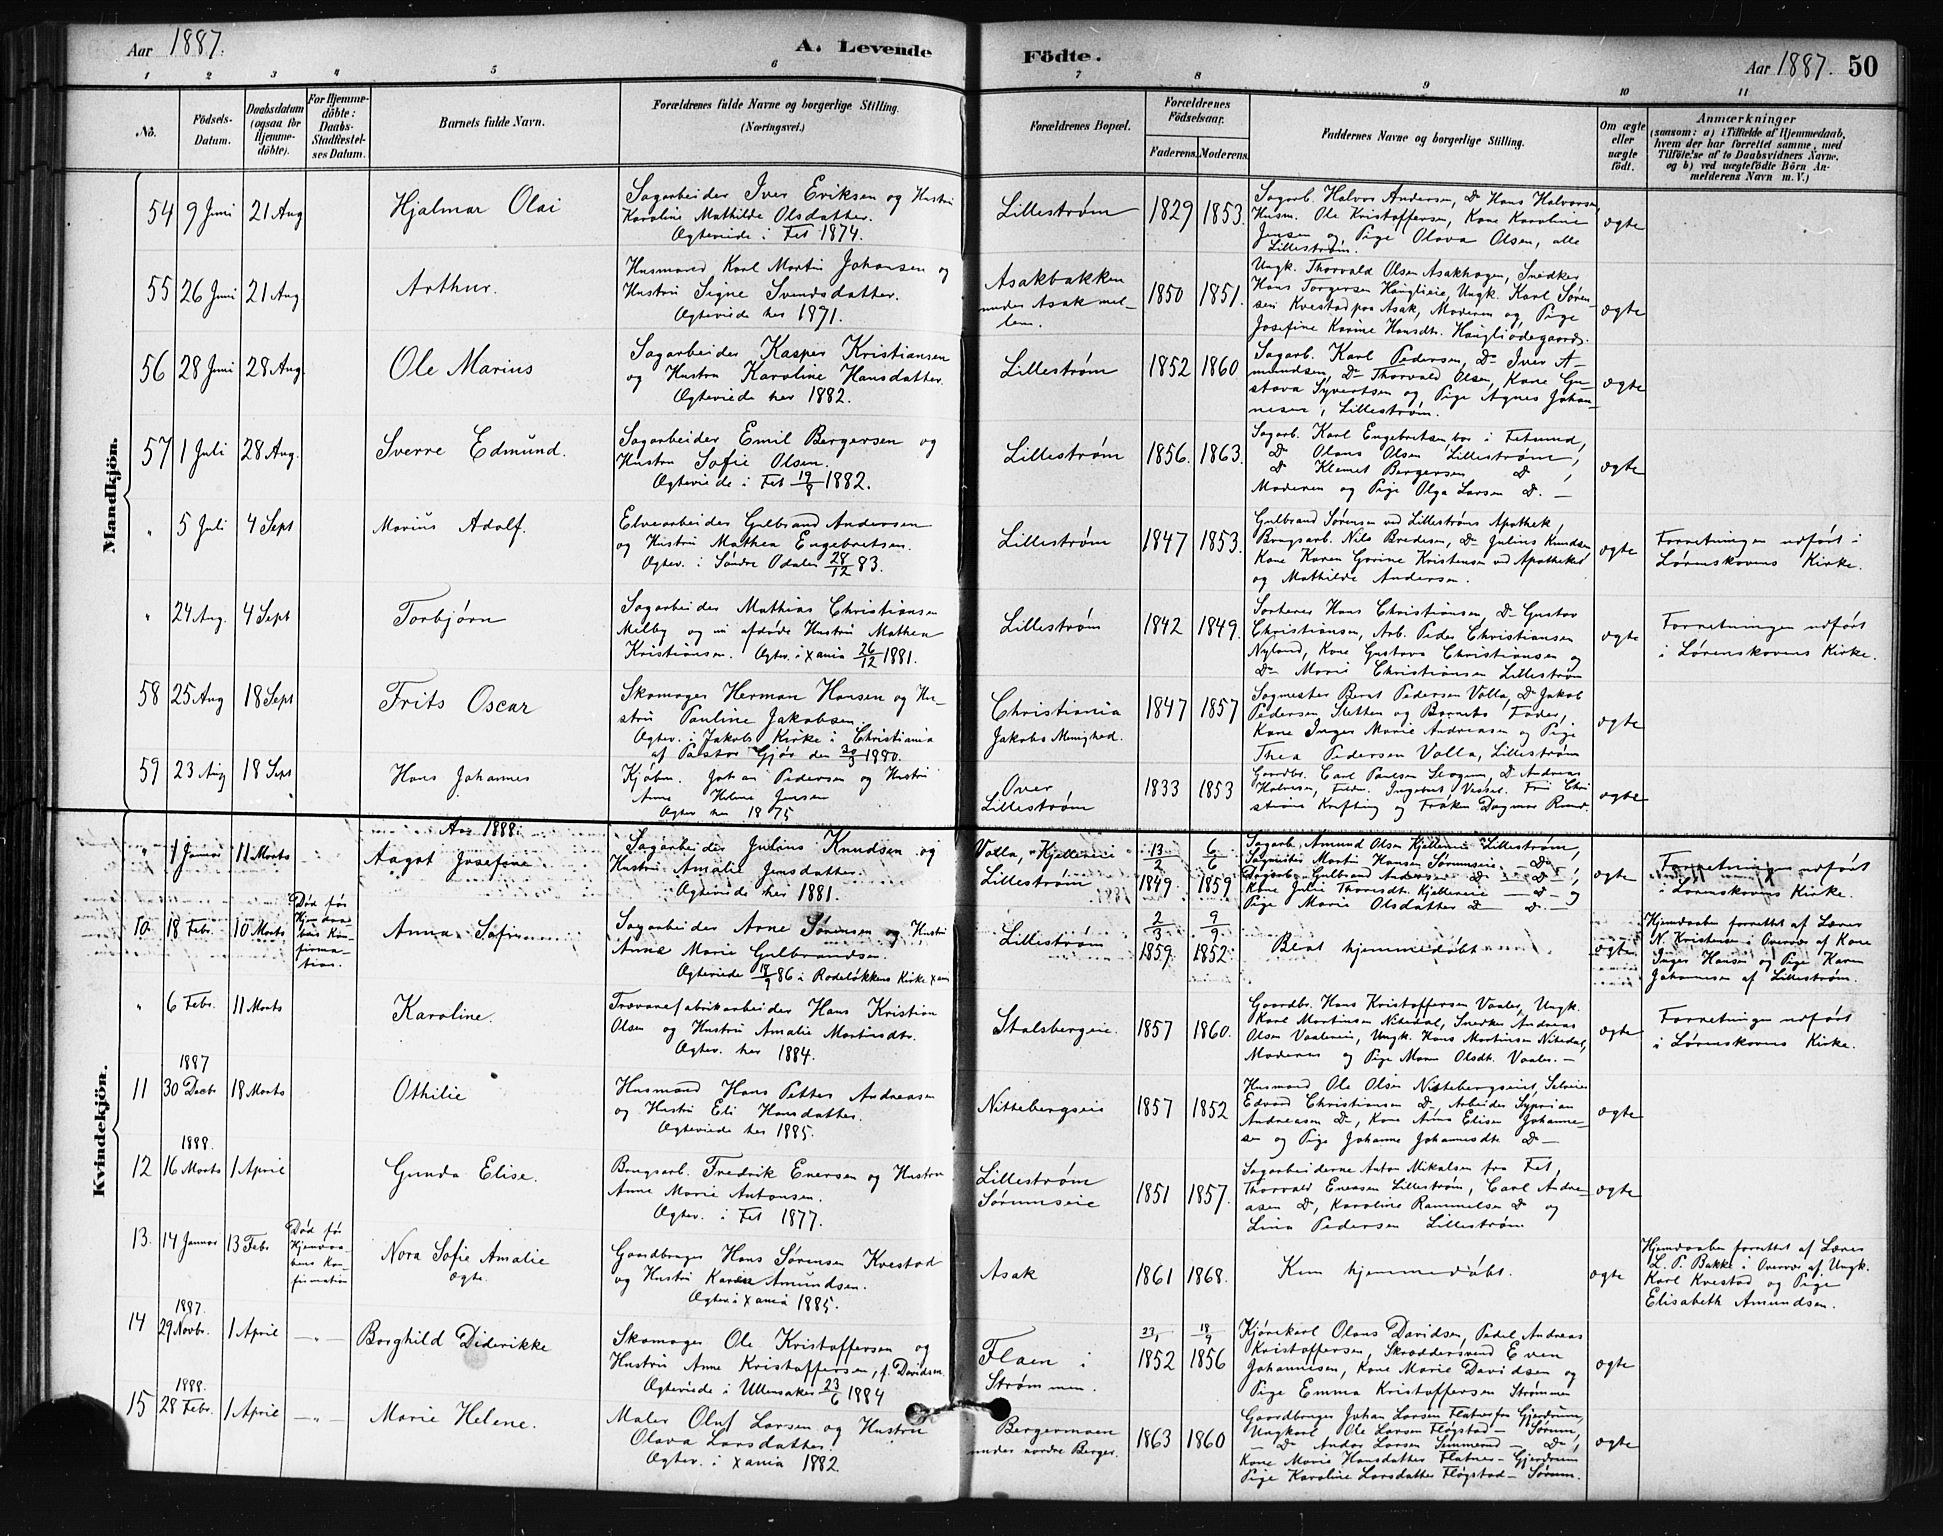 Aar 1887. A. Levende Födte. Aar 1887. 50
1 2 3 4 5 6 7 8 9 10 11
No. Födsels-Datum. Daabsdatum (ogsaa for Hjemmedöbte). For Hjemmedöbte: Daabs-Stadfæstelses Datum. Barnets fulde Navn. Forældrenes fulde Navne og borgerlige Stilling. (Næringsvei.) Forældrenes Bopæl. Forældrenes Födselsaar. Faderens. Moderens. Faddernes Navne og borgerlige Stilling. Om ægte eller uægte födt. Anmærkninger (saasom: a) i Tilfælde af Hjemmedaab, hvem der har forrettet samme, med Tilföielse af to Daabsvidners Navne, og b) ved uægtefödte Börn Anmelderens Navn m. V.)
Mandkjön.
54 9 Juni 21 Aug Hjalmar Olai
Sagarbeider Iver Eriksen og Hustru
Karoline Mathilde Olsdatter.
Ægteviede i Fet 1874.
Lillestrøm 1829 1853.
Sagarb. Halvor Andersen, Do Hans Halvorsen
Husm. Ole Kristoffersen, Kone Karoline
Jensen og Pige Olava Olsen, alle
Lillestrøm.
ægte
55 26 Juni 21 Aug Arthur.
Husmand Karl Martin Johansen og
Hustru Signe Svendsdatter.
Ægteviede her 1871.
Asakbakken
under Asak mel-
lem.
1850 1851.
Ungk. Thorvald Olsen Asakhagen, Snedker
Hans Torgersen Haugli eie, Ungk. Karl Søren-
sen Kvestad paa Asak, Moderen og Pige
Josefine Karine Hansdt. Haugliødegaard.
ægte
56 28 Juni 28 Aug. Ole Marius
Sagarbeider Kasper Kristiansen
og Hustru Karoline Hansdatter.
Ægteviede her 1882.
Lillestrøm 1852 1860
Sagarb. Karl Pedersen, Do Iver A-
mundsen, Do Thorvald Olsen, Kone Gu-
stava Syvertsen og Pige Agnes Johan-
nesen, Lillestrøm.
ægte
57 1 Juli 28 Aug. Sverre Edmund.
Sagarbeider Emil Bergersen og
Hustru Sofie Olsen.
Ægteviede i Fet 19/8 1882.
Lillestrøm 1856. 1863.
Sagarb. Karl Engebretsen bor i Fetsund,
Do Olaus Olsen Lillestrøm,
Do Klemet Bergersen, Do,
Moderen og Pige Olga Larsen Do. –
ægte
" 5 Juli 4 Sept Marius Adolf.
Elvearbeider Gulbrand Andersen
og Hustru Mathea Engebretsen.
Ægtev. i Søndre Odalen 28/12 83.
Lillestrøm 1847 1853.
Gulbrand Sørensen ved Lillestrøms Apothek,
Brugsarb. Nils Bredesen, Do Julius Knudsen,
Kone Karen Gorine Kristensen ved Apotheket
og Mathilde Andersen.
ægte
Forretningen udført i
Lørenskovens Kirke.
" 24 Aug. 4 Sept Torbjørn
Sagarbeider Mathias Christiansen
Melby og nu afdøde Hustru Mathea
Kristiansen. Ægtev. i Xania 26/12 1881.
Lillestrøm 1842 1849.
Sorterer Hans Christiansen, Do Gustav
Christiansen, Arb. Peder Christiansen
Nyland, Kone Gustava Christiansen og
Do Marie Christiansen Lillestrøm
ægte
Forretningen udført
i Lørenskovens Kirke.
58 25 Aug 18 Sept Frits Oscar
Skomager Herman Hansen og Hu-
stru Pauline Jakobsen.
Ægtev. i Jakobs Kirke i Christiania
af Pastor Gjør den 1880.
Christiania
Jakobs Menighed.
1847 1857
Sagmester Bernt Pedersen Volla, Do Jakob
Pedersen Sletten og Barnets Fader,
Kone Inger Marie Andreasen og Pige
Thea Pedersen Volla, Lillestrøm
ægte
59 23 Aug 18 Sept Hans Johannes
Kjøbm. Johan Pedersen og Hustru
Anne Helene Jensen
Ægtev her 1875
Over
Lillestrøm
1833 1853
Gaardbr. Carl Paulsen Skogum, Do Andreas
Halvorsen, Ingebret Vessel. Frk Chri
stiane Krefting og Frøken Dagmar
ægte
Kvindekjön.
Aar 1888.
" 1 Januar 11 Marts Aagot Josefine
Sagarbeider Julius Knudsen og
Hustru Amalie Jensdatter.
Ægteviede her 1881.
Volla, Kjellereie
Lillestrøm
13/2 1849. 6/6 1859
Sagarb. Amund Olsen Kjellereie Lillestrøm,
Sagmester Martin Hansen Sørumseie – Do –,
Sagarb. Gulbrand Andersen Do – Do –,
Kone Julie Thorsdt. Kjellereie – Do – og
Pige Marie Olsdatter Do – Do. –
ægte
Forretningen udført
i Lørenskovens Kirke.
10. 18 Febr. 10 Marts Død før
Hjemdaa-
bens Kon-
firma-
tion.
Anna Sofie
Sagarbeider Arne Sørensen og Hustru
Anne Marie Gulbrandsen.
Ægteviede 18/9 86 i Rodeløkkens Kirke Xania
Lillestrøm 2/3 1859. 9/9 1852.
Blot hjemmedøbt
ægte
Hjemdaaben forrettet af Lærer
N. Kristensen i Overvær af Kone
Inger Hansen og Pige Karen
Johannesen af Lillestrøm.
" 6 Febr. 11 Marts Karoline.
Trævarefabrikarbeider Hans Kristian
Olsen og Hustru Amalie Martinsdt.
Ægtev. her 1884.
Stalsbergeie. 1857 1860.
Gaardbr. Hans Kristoffersen Vaaler, Ungk.
Karl Martinsen Nitedal, Snedker Andreas
Olsen Vaalereie, Ungk. Hans Martinsen Nitedal,
Moderen og Pige Maren Olsdt. Vaaler. –
ægte
Forretningen udført
i Lørenskovens Kirke.
1887
11 30 Decbr. 18 Marts Othilie
Husmand Hans Petter Andreasen
og Hustru Eli Hansdatter.
Ægteviede her 1885.
Nittebergseie 1857 1852
Husmand Ole Olsen Nittebergseiet, Selveier
Edvard Christiansen Do, Arbeider Syprian
Andreasen Do, Kone Anne Elise Johanne-
sen og Pige Johanne Johannesdt. Do –
ægte
1888.
12 16 Marts 1 April Gunda Elise.
Brugsarb. Fredrik Enersen og Hustru
Anne Marie Antonsen.
Ægtev. i Fet 1877.
Lillestrøm
Sørumseie
1851 1857.
Sagarbeiderne Anton Mikalsen fra Fet,
Thorvald Eneasen Lillestrøm, Carl Andre-
asen Do, Karoline Rammelsen Do og
Lina Pedersen Lillestrøm
ægte
13. 14 Januar 13 Febr. Død før
Hjemdaa-
bens Kon-
firmation
Nora Sofie Amalie
ægte.
Gaardbruger Hans Sørensen Kvestad
og Hustru Karen Amundsen.
Ægtev. i Xania 1885.
Asak 1861 1868.
Kun hjemmedøbt.
ægte
Hjemdaaben forrettet af Lærer
L. P. Bakke i Overvær af Ungk.
Karl Kvestad og Pige
Elisabeth Amundsen.
1887.
14 29 Novbr. 1 April – " – Borghild Diderikke
Skomager Ole Kristoffersen og
Hustru Anne Kristoffersen, f. Davidsen.
Ægteviede i Ullensaker 23/6 1884
Flaen i
Strømmen.
23/1 1852 18/9 1856
Kjørekarl Olaus Davidsen, Pedel Andreas
Kristoffersen, Skræddersvend Even
Johannesen, Kone Marie Davidsen og
Pige Emma Kristoffersen Strømmen
ægte
1888.
15 28 Febr. 1 April – " – Marie Helene.
Maler Oluf Larsen og Hustru
Olava Larsdatter.
Ægtev. i Xania 1882.
Bergermoen
under nordre Berger.
1863 1860
Gaardbruger Johan Larsen Flatner fra Gjerdrum,
Ungkarl Ole Larsen Fløgstad – Sørum,
– Do Anders Larsen – Do,
Kone Marie Hansdatter Flatner – Gjerdrum
Pige Karoline Larsdatter Fløgstad – Sørum.
ægte